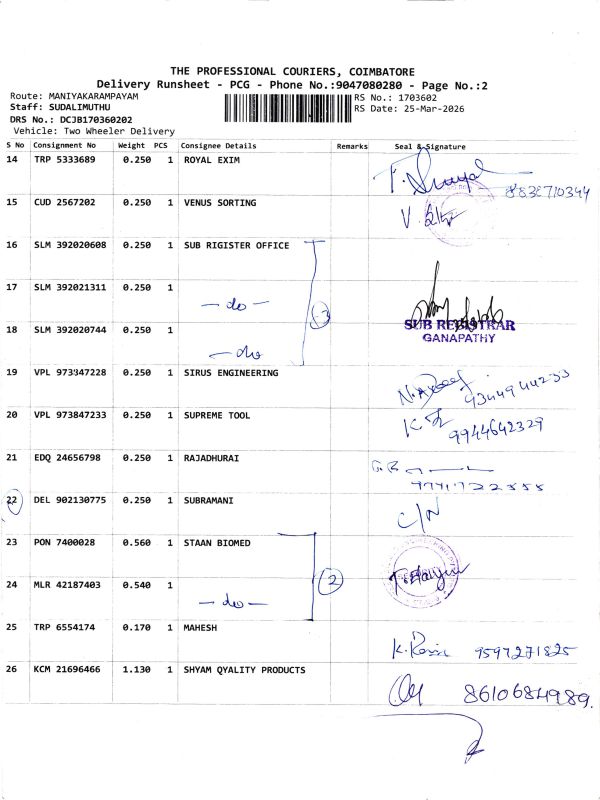 THE PROFESSIONAL COURIERS, COIMBATORE
Delivery Runsheet - PCG - Phone No.:9047080280 - Page No.:2
Route: MANIYAKARAMPAYAM RS No.: 1703602
Staff: SUDALIMUTHU RS Date: 25-Mar-2026
DRS No.: DCJB170360202
Vehicle: Two Wheeler Delivery
S No Consignment No Weight PCS Consignee Details Remarks Seal & Signature
14 TRP 5333689 0.250 1 ROYAL EXIM
15 CUD 2567202 0.250 1 VENUS SORTING
16 SLM 392020608 0.250 1 SUB RIGISTER OFFICE
17 SLM 392021311 0.250 1 - do - 3
18 SLM 392020744 0.250 1 - do
SUB REGISTRAR
GANAPATHY
19 VPL 973847228 0.250 1 SIRUS ENGINEERING
20 VPL 973847233 0.250 1 SUPREME TOOL 9944642329
21 EDQ 24656798 0.250 1 RAJADHURAI
22 DEL 902130775 0.250 1 SUBRAMANI C/N
23 PON 7400028 0.560 1 STAAN BIOMED
24 MLR 42187403 0.540 1 - do - 2
25 TRP 6554174 0.170 1 MAHESH 9597271825
26 KCM 21696466 1.130 1 SHYAM QYALITY PRODUCTS 8610684989.